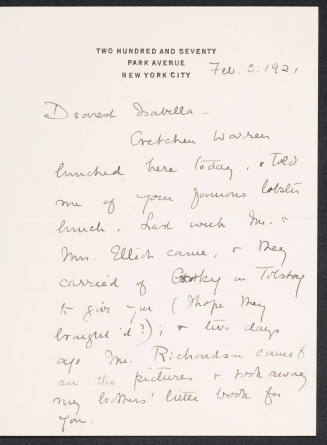 TWO HUNDRED AND SEVENTY
PARK AVENUE
NEW YORK CITY
Feb. 2. 1921
Dearest Isabella -
Gretchen Warren
lunched here today, & told
me of your famous lobster
lunch. Last week Mr. &
Mrs. Elliot came, & they
carried of Gorky on Tolstoy
to give you (I hope they
brought it?); & two days
ago Mr. Richardson came to
see the pictures & took away
my brothers' little book for
you.